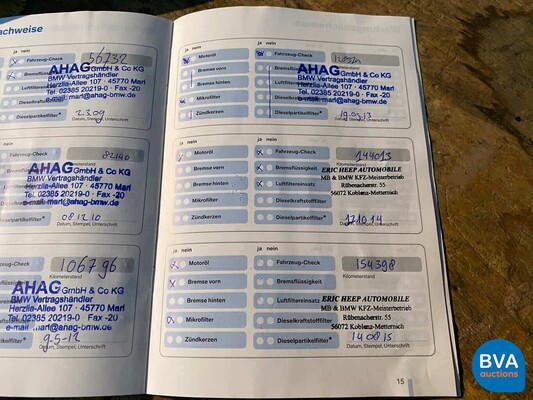 achweise
ja nein
56732
Fahrzeug-Check
Bremsflüssigkeit
AHAG GmbH & Co KG
BMW Vertragshändler
Herzlia-Allee 107 · 45770 Marl
Tel. 02385 20219-0 · Fax -20
e-mail: marl@ahag-bmw.de
Dieselpartikelfilter*
2.3.09
Datum, Stempel, Unterschrift
Fahrzeug-Check
82140
AHAG GmbH & Co KG
BMW Vertragshändler
Herzlia-Allee 107 · 45770 Marl
Tel. 02385 20219-0 · Fax -20
e-mail: marl@ahag-bmw.de
Dieselpartikelfilter*
08.12.10
Datum, Stempel, Unterschrift
Fahrzeug-Check
106796
Kilometerstand
AHAG GmbH & Co KG
BMW Vertragshändler
Herzlia-Allee 107 · 45770 Marl
Tel. 02385 20219-0 · Fax -20
e-mail: marl@ahag-bmw.de
Dieselpartikelfilter*
9-5-12
Datum, Stempel, Unterschrift
ja nein
ja nein
Motoröl
Fahrzeug-Check
Bremse vorn
Bremse hinten
Mikrofilter
Zündkerzen
AHAG GmbH & Co KG
BMW Vertragshändler
Herzlia-Allee 107 · 45770 Marl
Tel. 02385 20219-0 · Fax -20
e-mail: marl@ahag-bmw.de
Dieselpartikelfilter*
19.03.13
Datum, Stempel, Unterschrift
ja nein
ja nein
Motoröl
Fahrzeug-Check
144013
Bremse vorn
Bremsflüssigkeit
Bremse hinten
Luftfiltereinsatz
Mikrofilter
Dieselkraftstofffilter
Zündkerzen
Dieselpartikelfilter*
ERIC HEEP AUTOMOBILE
MB & BMW KFZ-Meisterbetrieb
Rübenacherstr. 55
56072 Koblenz-Metternich
Datum, Stempel, Unterschrift
ja nein
ja nein
Motoröl
Fahrzeug-Check
154398
Kilometerstand
Bremse vorn
Bremsflüssigkeit
Bremse hinten
Luftfiltereinsatz
Mikrofilter
Dieselkraftstofffilter
Zündkerzen
Dieselpartikelfilter*
ERIC HEEP AUTOMOBILE
MB & BMW KFZ-Meisterbetrieb
Rübenacherstr. 55
56072 Koblenz-Metternich
14.08.15
Datum, Stempel, Unterschrift
15
BVA
auctions